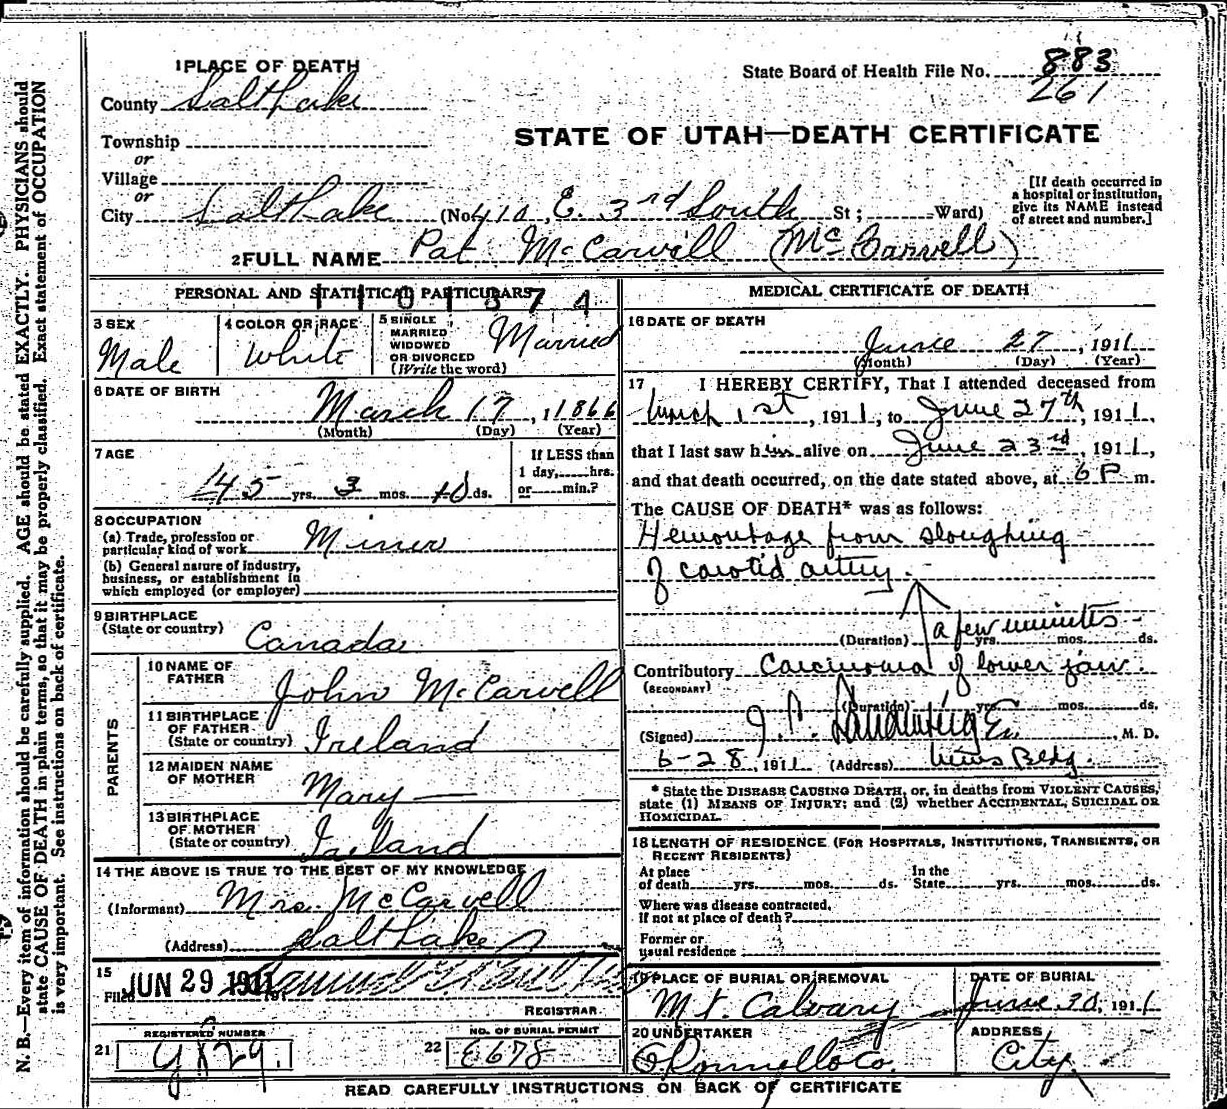 N. B.—Every item of information should be carefully supplied. AGE should be stated EXACTLY. PHYSICIANS should
state CAUSE OF DEATH in plain terms, so that it may be properly classified. Exact statement of OCCUPATION
is very important. See instructions on back of certificate.
State Board of Health File No. 883
261
STATE OF UTAH—DEATH CERTIFICATE
1 PLACE OF DEATH
County Salt Lake
Township
or
Village
or
City Salt Lake (No. 410 E. 3rd South St; Ward)
[If death occurred in
a hospital or institution,
give its NAME instead
of street and number.]
2 FULL NAME Pat McCarvill (McCarvell)
PERSONAL AND STATISTICAL PARTICULARS
3 SEX
Male
4 COLOR OR RACE
White
5 SINGLE
MARRIED
WIDOWED
OR DIVORCED
(Write the word)
Married
6 DATE OF BIRTH
March 17, 1866
(Month) (Day) (Year)
7 AGE
45 yrs. 3 mos. 10 ds.
If LESS than
1 day, hrs.
or min.?
8 OCCUPATION
(a) Trade, profession or
particular kind of work Miner
(b) General nature of industry,
business, or establishment in
which employed (or employer)
9 BIRTHPLACE
(State or country) Canada
PARENTS
10 NAME OF
FATHER John McCarvell
11 BIRTHPLACE
OF FATHER
(State or country) Ireland
12 MAIDEN NAME
OF MOTHER Mary —
13 BIRTHPLACE
OF MOTHER
(State or country) Ireland
14 THE ABOVE IS TRUE TO THE BEST OF MY KNOWLEDGE
(Informant) Mrs. McCarvell
(Address) Salt Lake
15
Filed JUN 29 1911
REGISTRAR.
REGISTERED NUMBER
21
NO. OF BURIAL PERMIT
22 E678
MEDICAL CERTIFICATE OF DEATH
16 DATE OF DEATH
June 27, 1911
(Month) (Day) (Year)
17 I HEREBY CERTIFY, That I attended deceased from
March 1st, 1911, to June 27th, 1911,
that I last saw him alive on June 23rd, 1911,
and that death occurred, on the date stated above, at 6 P m.
The CAUSE OF DEATH* was as follows:
Hemorrhage from sloughing
of carotid artery.
(Duration) a few minutes yrs. mos. ds.
Contributory Carcinoma of lower jaw.
(SECONDARY)
(Duration) yrs. mos. ds.
(Signed) M. D.
6-28, 1911 (Address) News Bldg.
* State the DISEASE CAUSING DEATH, or, in deaths from VIOLENT CAUSES,
state (1) MEANS OF INJURY; and (2) whether ACCIDENTAL, SUICIDAL OR
HOMICIDAL.
18 LENGTH OF RESIDENCE (FOR HOSPITALS, INSTITUTIONS, TRANSIENTS, OR
RECENT RESIDENTS)
At place
of death yrs. mos. ds.
In the
State yrs. mos. ds.
Where was disease contracted,
If not at place of death?
Former or
usual residence
19 PLACE OF BURIAL OR REMOVAL
Mt. Calvary
DATE OF BURIAL
June 30, 1911
20 UNDERTAKER
O'Donnell & Co.
ADDRESS
City
READ CAREFULLY INSTRUCTIONS ON BACK OF CERTIFICATE